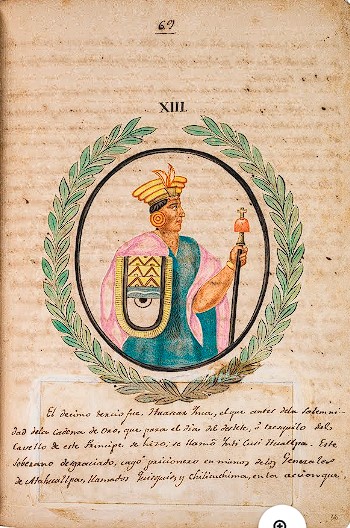 69
XIII
El decimo tercio fue, Huascar Inca, el que antes dela Solemni-
dad dela Cadena de Oro, que para el dia del destete, ò trasquilo del
Cavello de este Principe se hizo; se llamó Inti Cusi Huallpa. Este
Soberano desgraciado, cayó pricionero en manos de los Generales
de Atahuallpa, llamados Quisquis y Chilicuchima, en la accion que